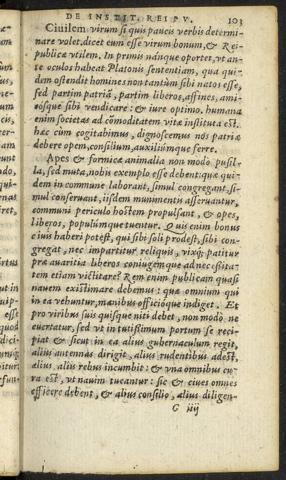 DE INSTIT. REI PV. 103
Ciuilem virum si quis paucis verbis determi-
nare volet, dicet eum esse virum bonum, & Rei-
publicæ vtilem. In primis nanque oportet, vt an-
te oculos habeat Platonis sententiam, qua qui-
dem ostendit homines non tantùm sibi natos esse,
sed partim patriæ, partim liberos, affines, ami-
cosque sibi vendicare: & iure optimo. humana
enim societas ad cōmoditatem vitæ instituta est.
hæc cùm cogitabimus, dignoscemus nos patriæ
debere opem, consilium, auxiliúmque ferre.
Apes & formicæ animalia non modo pusil-
la, sed muta, nobis exemplo esse debent: quæ qui-
dem in commune laborant, simul congregant, si-
mul conseruant, iisdem munimentis asseruantur,
communi periculo hostem propulsant, & opes,
liberos, populúmque tuentur. Quis enim bonus
ciuis haberi potest, qui sibi soli prodest, sibi con-
gregat, nec impartitur reliquis, vixq; patitur
præ auaritia liberos coniugémque adnecessita-
tem etiam victitare? Rem enim publicam quasi
nauem existimare debemus: quæ omnium qui
in ea vehuntur, manibus officióque indiget. Et
pro viribus suis quisque niti debet, non modo ne
euertatur, sed vt in tutissimum portum se reci-
piat & sicut in ea alius gubernaculum regit,
alius antennas dirigit, alius rudentibus adest,
alius, alius rebus incumbit: & vna omnibus cu-
ra est, vt nauim tueantur: sic & ciues omnes
efficere debent, & alius consilio, alius diligen-
G iiij